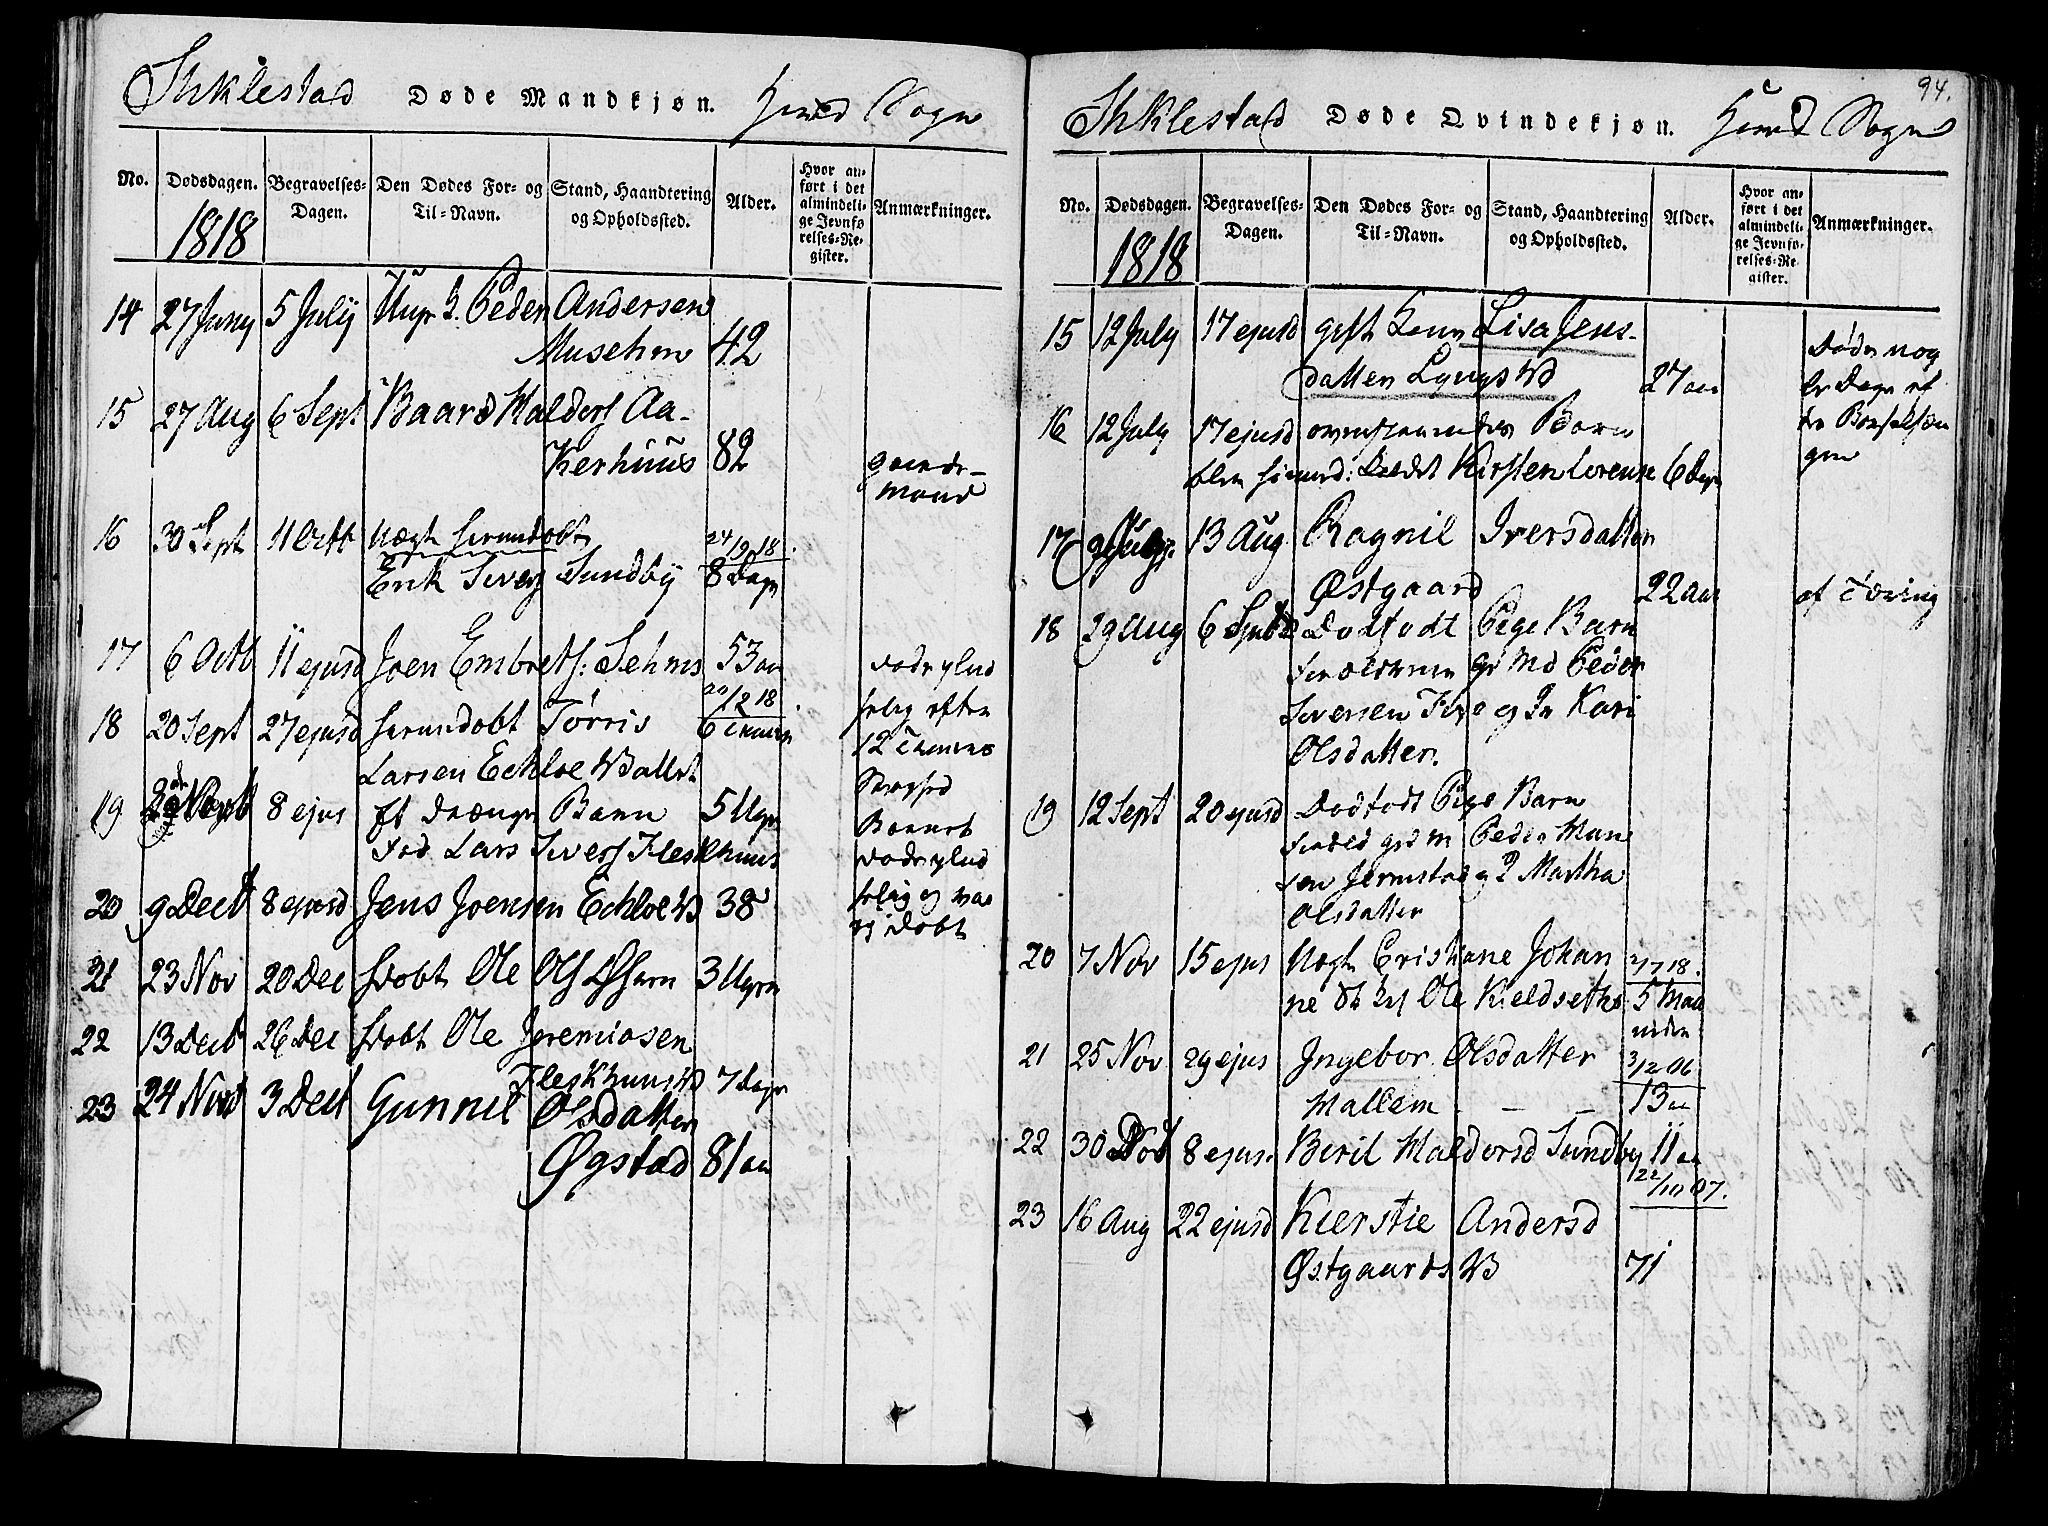 Stiklestad Døde Mandkjøn. Hoved Sogn
No. Dødsdagen. Begravelses-Dagen. Den Dødes For- og Til-Navn. Stand, Haandtering og Opholdssted. Alder. Hvor anført i det almindelige Jevnførelses-Register. Anmærkninger.
1818
14 27 Juny 5 July Peder Andersen
Musehm 42
15 27 Aug 6 Sept Baard Halders Aa-
Kerhuus 82 gaards-
mand
16 30 Sept 11 Octb
24/9 18.
Erik Sivers Sundby 8 Dage
17 6 Octb 11 ejusd Joen Embrets: Sehms 53 aar
20/12 18
18 20 Sept 27 ejusd Tørris 6
Larsen Echloe Vallet
12
19 8 ejus et Drænge Barn 5 Uger
Fød Lars Sivers Fleskhuus
Barnet
20 9 Decb 8 ejusd Jens Joensen Echloe V 38
og var
ej døbt
21 23 Nov 20 Dec Døbt Ole Ols 3 Uger
22 13 Decb 26 Dec Døbt Ole Jeremiasen
Fleskhuus V 7 Dage
23 24 Novb 3 Decb Gunnil Olsdatter
Øgstad 81 aar
94.
Stiklestad Døde Qvindekjøn. Hoved Sogn
No. Dødsdagen. Begravelses-Dagen. Den Dødes For- og Til-Navn. Stand, Haandtering og Opholdssted. Alder. Hvor anført i det almindelige Jevnførelses-Register. Anmærkninger.
1818
15 12 July 17 ejusd gift Kone Lisa Jens-
datter Lyngs Vd 27 aar
Døde nog
le Dage ef
ter Barselsæn
gen
16 12 July 17 ejusd Barn
Kirsten Lorense 6 Dage
17 13 Aug Ragnil Iversdatter
Østgaard 22 aar af Tæring
18 29 Aug 6 Septb Dødfødt Pige Barn
Forældrene Gr Md Peder
Siversen og Qv Kari
Olsdatter.
19 12 Sept 20 ejusd Dødfødt Pige Barn
Peder Han
sen Jermstad og Q Martha
Olsdatter
20 7 Nov 15 ejus Cristiane Johan
ne Ole Kieldseths 5 Maa
neder
21 25 Nov 29 ejus Ingebor Olsdatter
3/12 06
Hallem - - - 13 aar
22 30 Nov 8 ejus. Beril Haldorsd Sundby 11 aar
22/10 07.
23 16 Aug 22 ejusd Kierstie Andersd
Østgaards V 71